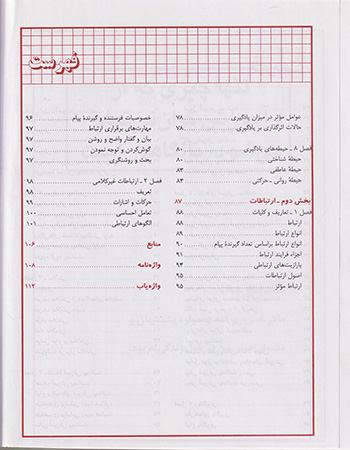 فهرست
عوامل مؤثر در میزان یادگیری ۷۸
حالات اثرگذاری بر یادگیری ۷۸
فصل ۸ ـ حیطه‌های یادگیری ۸۰
حیطهٔ شناختی ۸۰
حیطهٔ عاطفی ۸۳
حیطهٔ روانی ـ حرکتی ۸۴
بخش دوم ـ ارتباطات ۸۷
فصل ۱ ـ تعاریف و کلیات ۸۸
ارتباط ۸۸
انواع ارتباط ۸۹
انواع ارتباط براساس تعداد گیرندهٔ پیام ۹۰
اجزاء فرایند ارتباط ۹۱
پارازیت‌های ارتباطی ۹۳
اصول ارتباطات ۹۵
ارتباط مؤثر ۹۵
خصوصیات فرستنده و گیرندهٔ پیام ۹۶
مهارت‌های برقراری ارتباط ۹۷
بیان و گفتار واضح و روشن ۹۷
گوش‌کردن و توجه نمودن ۹۷
بحث و روشنگری ۹۷
فصل ۲ ـ ارتباطات غیرکلامی ۹۸
تعریف ۹۸
حرکات و اشارات ۹۹
تعامل احساسی ۱۰۰
الگوهای ارتباطی ۱۰۱
منابع ۱۰۶
واژه‌نامه ۱۰۸
واژه‌یاب ۱۱۲